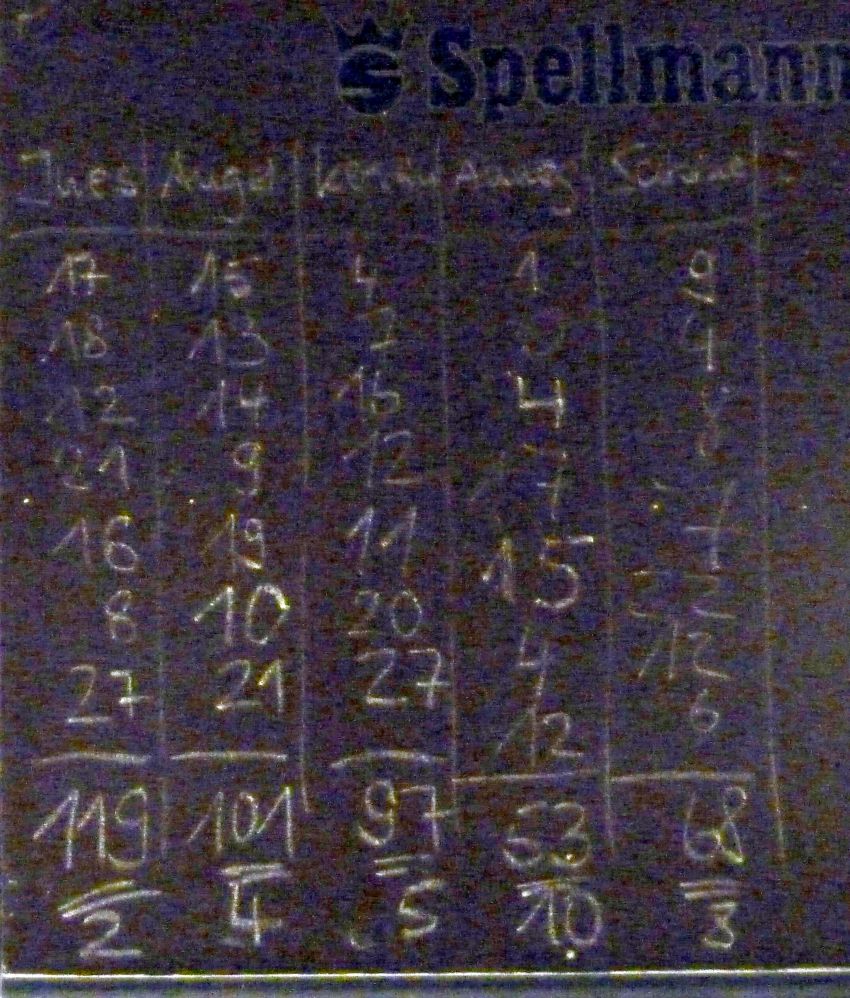 Spellmann
Ines Angel
17 15 4 1 9
18 13 4
12 14 16 4 8
21 9 12 17 7
16 19 11 15 22
8 10 20 4 12
27 21 27 12 6
119 101 97 53 68
2 4 5 10 8